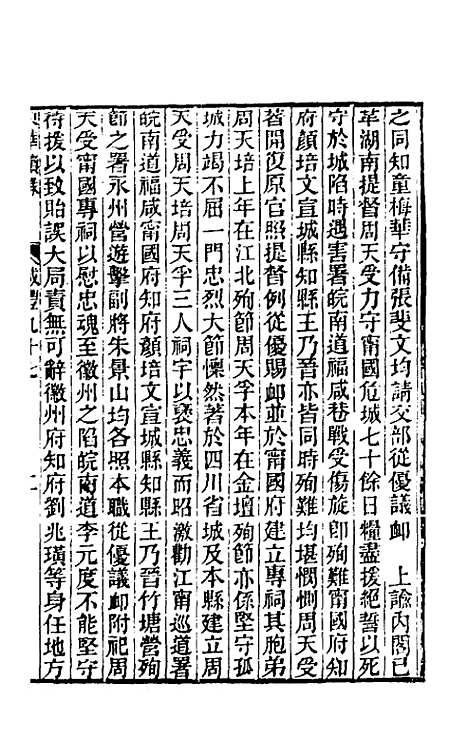 之同知童梅華守備張斐文均請交部從優議卹　上諭內閣已
革湖南提督周天受力守甯國危城七十餘日糧盡援絕誓以死
守於城陷時遇害署皖南道福咸巷戰受傷旋卽殉難甯國府知
府顏培文宣城縣知縣王乃晉亦皆同時殉難均堪憫惻周天受
著開復原官照提督例從優賜卹並於甯國府建立專祠其胞弟
周天培上年在江北殉節周天孚本年在金壇殉節亦係堅守孤
城力竭不屈一門忠烈大節懍然著於四川省城及本縣建立周
天受周天培周天孚三人祠宇以襃忠義而昭激勸江南巡道署
皖南道福咸甯國府知府顏培文宣城縣知縣王乃晉竹塘營殉
節之署永州營遊擊副將朱景山均各照本職從優議卹附祀周
天受甯國專祠以慰忠魂至徽州之陷皖南道李元度不能堅守
待援以致貽誤大局責無可辭徽州府知府劉兆璜等身任地方
咸豐九十七